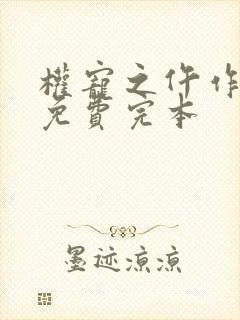 權寵之仵作
免費完本
墨迹凉凉